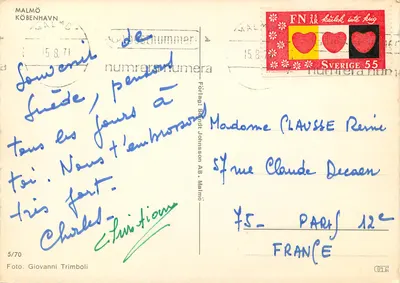 MALMÖ
KÖBENHAVN
Souvenir de
Suède, pensons
tous les jours à
toi. Nous t'embrassons
très fort.
Charles-
Christian
5/70
Foto: Giovanni Trimboli
Förlag: Bendt Johnsson AB., Malmö
15.8.71
nummer
numera
FN 25 år
kärlek inte krig
SVERIGE 55
Madame CLAUSSE Reine
57 rue Claude Decaen
75- PARIS 12e
FRANCE